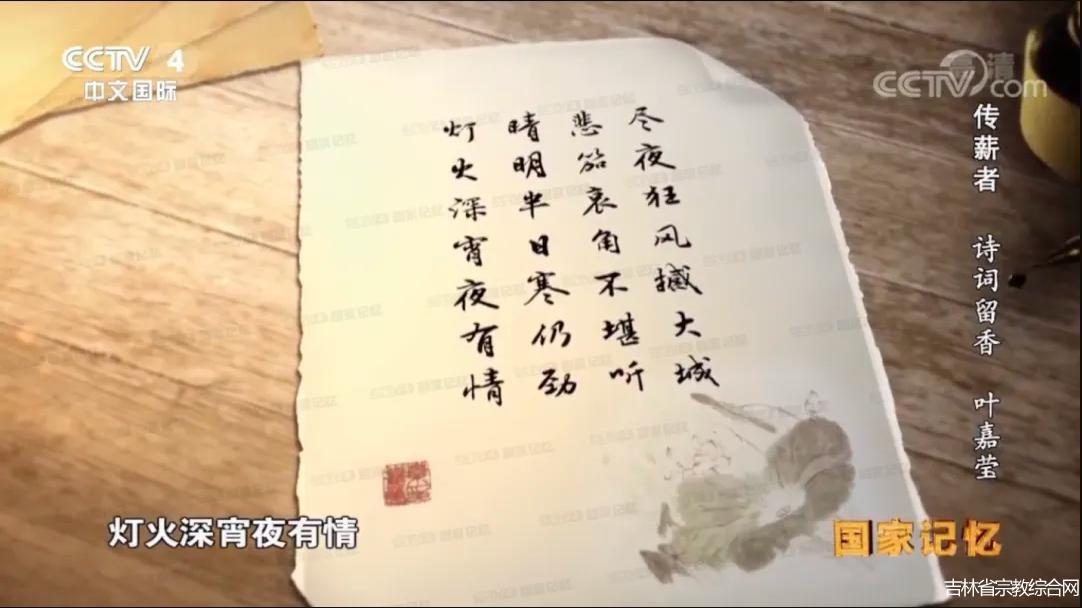 CCTV 4
中文国际
高清
CCTV.com
传薪者 诗词留香 叶嘉莹
尽夜狂风撼大城
悲笳哀角不堪听
晴明半日寒仍劲
灯火深宵夜有情
灯火深宵夜有情
国家记忆
吉林省宗教综合网